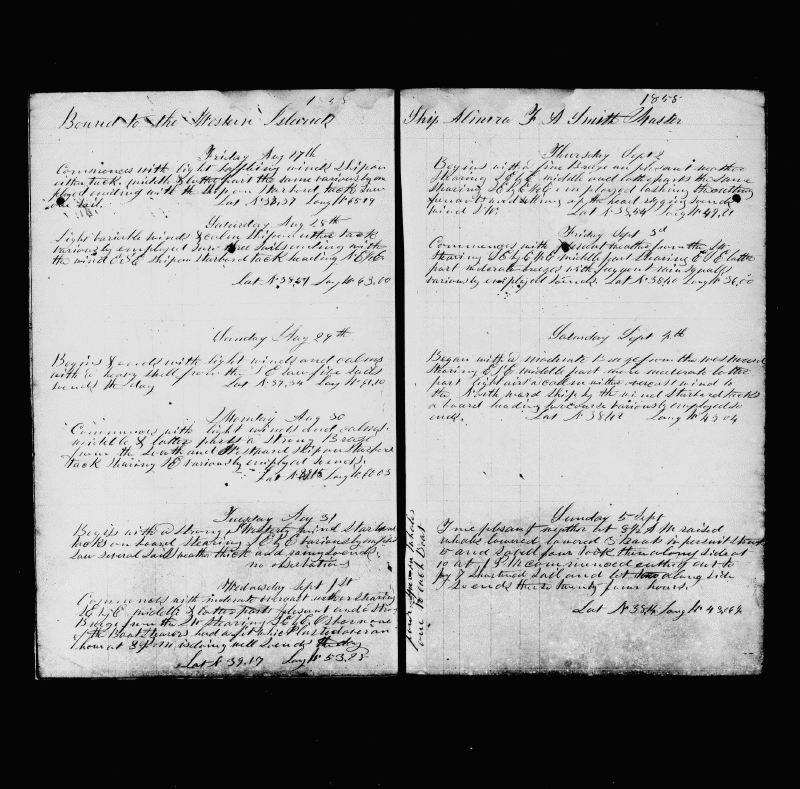 Bound to the Western Islands
Friday Aug 27th
Commences with light baffling winds Ship on
either tack. middle & latter part the same variously em
ployed ending with the ship on Starbord tack saw
one sail. Lat N 38.37 Long W 65.19
Saturday Aug 28th
Light variable winds & calm Ship on either tack
variously employed saw three sails ending with
the wind ESE ship on starbord tack heading N E by E
Lat N 38.47 Long W 63.00
Sunday Aug 29th
Begins & ends with light winds and calms
with a heavy swell from the S E saw five sails
so ends the day Lat N 39.34 Long W 61.10
Monday Aug 30
Commences with light winds and calms
middle & latter parts a strong Breze
from the South and Westward ship on Starbord
tack stearing SE variously employed so ends.
Lat N Long W 60.03
Tuesday Aug 31
Begins with a strong Westerly wind Starbord
tacks on board stearing S E by E variously employed
saw several sails weather thick and rainy so ends.
no observations
Wednesday Sept 1st
Commences with moderate overcast wether stearing
S E by E middle & latter part plesant and a strong
Breeze from the SW stearing S E by E Osborn one
of the Boat stearers had a fit which lasted over an
hour at 8 P M is doing well so ends the day
Lat N 39.17 Long W 53.25
1858
Ship Almira F A Smith Master
Thursday Sept 2
Begins with a fine Breze and plesant weather
stearing S E by E middle and latter parts the same
stearing S E by E 1/2 E employed lashing the cutting
penant and setting up the head rigging so ends
wind SW. Lat N 38.54 Long W 49.21
Friday Sept 3d
Commences with plesant weather from the SW
stearing S E by E 1/2 E middle part stearing E S E latter
part moderate brezes with frequent rain squalls
variously employed so ends. Lat N 38.40 Long W 36.00
Saturday Sept 4th
Began with a moderate breze from the westward
stearing E S E middle part more moderate latter
part light airs & calm with overcast wind to
the Northward ship by the wind starbord tacks
a board heading for course variously employed so
ends. Lat N 38.42 Long W 43.04
Sunday 5 Sept
Fine plesant weather at 8 1/2 A M raised
whales lowered lowered 3 boats in persuit struck
and saved four took them along side at
10 at 1 P M commenced cutting out to
by 7 shortned sail and let two along side
So ends these twenty four hours.
Lat N 38.14 Long W 43.09
four sperm whales
one to each Boat